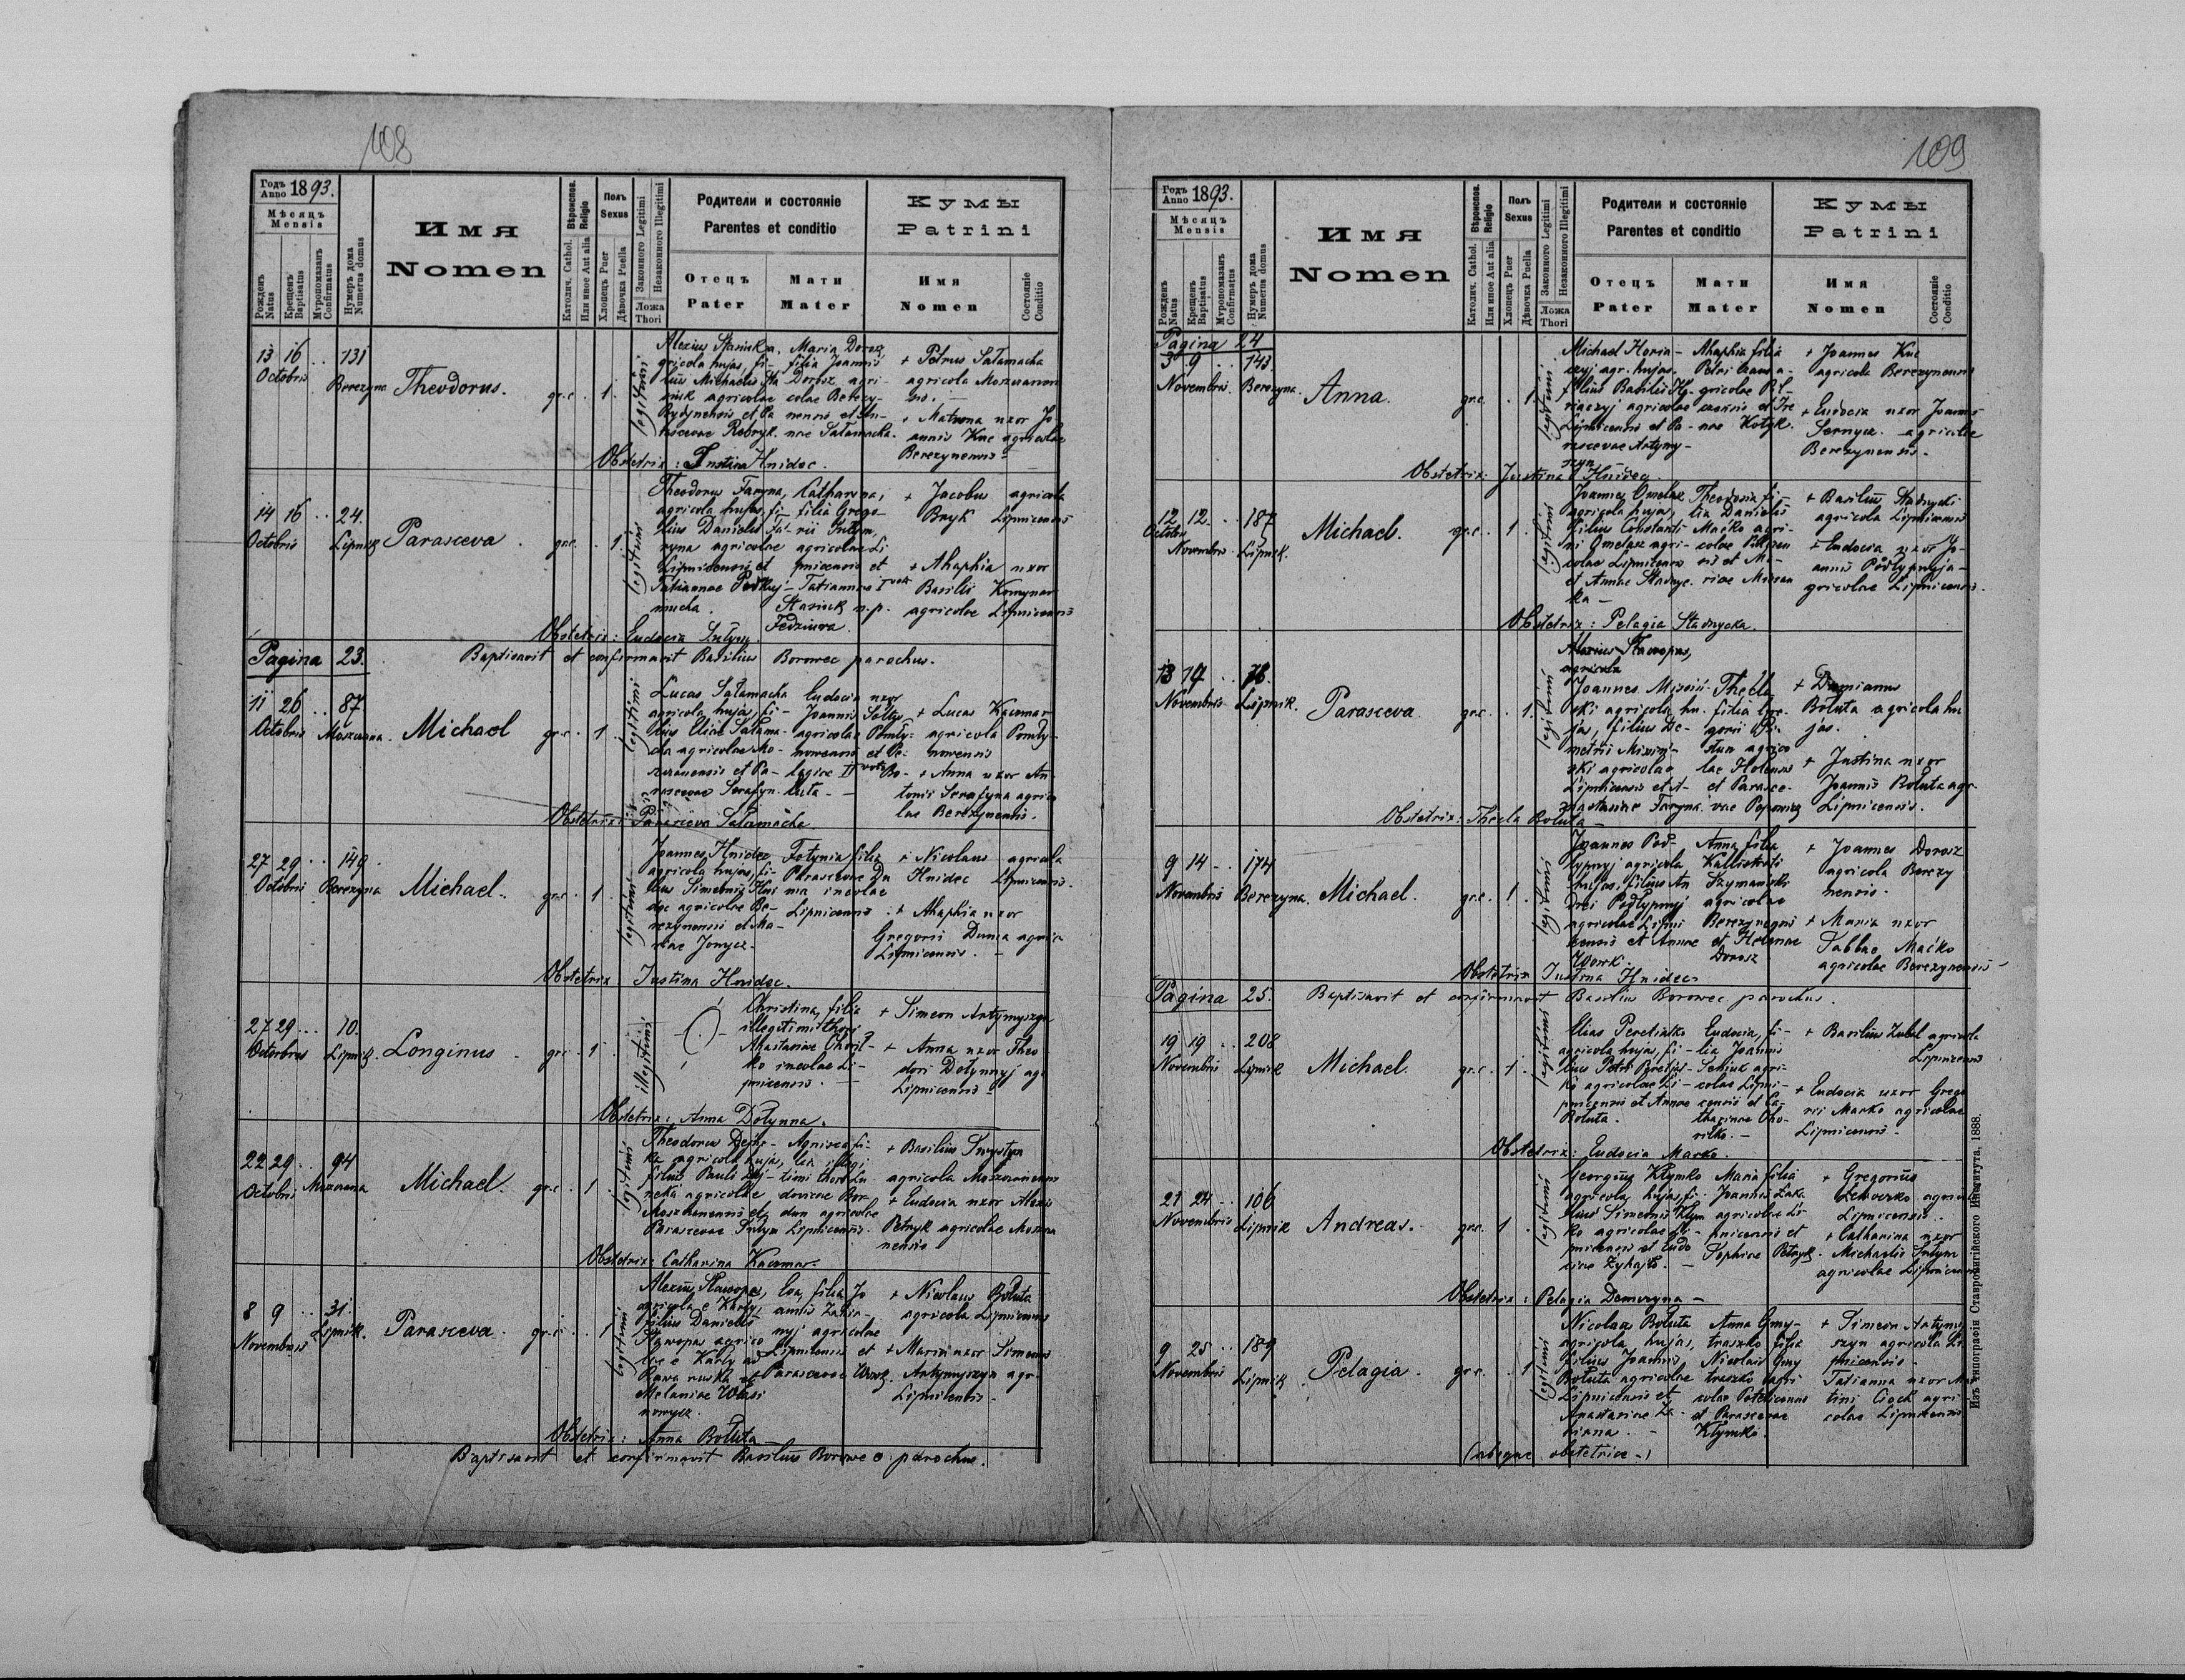 108
Годъ Anno 1893.
Мѣсяцъ Mensis
Рожденъ Natus
Крещенъ Baptisatus
Муропомазанъ Confirmatus
Нумеръ дома Numerus domus
Имя
Nomen
Вѣроиспов. Religio
Католич. Cathol.
Или иное Aut alia
Полъ Sexus
Хлопецъ Puer
Дѣвочка Puella
Законного Legitimi
Незаконного Illegitimi
Ложа Thori
Родители и состояніе
Parentes et conditio
Отецъ Pater
Мати Mater
Кумы
Patrini
Имя Nomen
Состояніе Conditio
13 16 .. 131
Octobris Berezyna Theodorus. gr.c. 1. legitimi
Alexius Stasiuk a-
gricola hujas, fi-
lius Michaelis Sta
siuk agricolae
et Pa
rascevae
Maria Dorosz
filia Joannis
Dorosz agri-
colae Berezy-
nensis et An-
nae Sałamacha.
+ Petrus Sałamacha
agricola Moszczanen
sis. —
+ Matrona uxor Jo
annis Kuc agricolae
Berezynensis
Obstetrix: Justina Hnidec.
14 16 .. 24.
Octobris Lipnik Parasceva. gr.c. . 1 legitimi
Theodorus Faryna,
agricola hujas, fi-
lius Danielis Fa-
ryna agricolae
Lipnicensis et
Tatiannae
Catharina,
filia Grego-
rii
agricolae Li
pnicensis et
Tatiannae
Stasiuk n.p.
Fedziura
+ Jacobus Bryk agricola Lipnicensis
+ Ahaphia uxor
Basilii
agricolae Lipnicensis
Obstetrix: Eudocia
Pagina 23. Baptisavit et confirmavit Basilius Borowec parochus.
11 26 .. 87
Octobris Moszczana. Michael gr.c. 1 legitimi
Lucas Sałamacha
agricola hujas, fi-
lius Eliae Sałama-
cha agricolae Mo-
szczanensis et Pa-
rascevae Serafyn.
Eudocia uxor
Joannis Sołtys
agricolae
et Pe-
lagiae II voto Bo-
łuta -
+ Lucas Kaczmar
agricola
+ Anna uxor An
tonii Serafyna agrico
lae Berezynensis.
Obstetrix: Parasceva Sałamacha
27 29 .. 149.
Octobris Berezyna Michael. gr.c. 1 legitimi
Joannes Hnidec
agricola hujas, fi-
lius Simeonis Hni
dec agricolae Be-
rezynensis et Ma-
riae
Fotynia filia
Parascevae Du
ma incolae
Lipnicensis
+ Nicolaus Hnidec agricola Lipnicensis.
+ Ahaphia uxor
Gregorii Duma agrico
Lipnicensis. -
Obstetrix Justina Hnidec.
27 29 ... 10.
Octobris Lipnik. Longinus gr.c. 1 illegitimi
Christina, filia
illegitimi thori
Anastasiae Choryl-
ko incolae Li-
pnicensis. —
+ Simeon Artymyszyn
+ Anna uxor Theo
dori Dołynnyj agr.
Lipnicensis
Obstetrix: Anna Dołynna.
22 29 .. 94
Octobris Moszczana Michael. gr.c. 1 legitimi
Theodorus
agricola hujas,
filius Pauli
agricolae
Moszczanensis et
Parascevae
Agnissa fi-
lia illegi
timi thori
agricolae
Lipnicensis.
+ Basilius
agricola Moszczanensis
+ Eudocia uxor Alexii
Petryk agricolae Moszcza
nensis
Obstetrix: Catharina Kaczmar.
8 9 .. 31.
Novembris Lipnik. Parasceva. gr.c. . 1 legitimi
Alexius Stawopas,
agricola e Karły,
filius Danielis
Stawopas agrico
lae e Karły ad
Rawa ruska et
Melaniae
Eva, filia Jo
annis
agricolae
Lipnicensis et
Parascevae Worok.
+ Nicolaus Bołuta
agricola Lipnicensis
+ Maria uxor Simeonis
Artymyszyn agr.
Lipnicensis -
Obstetrix: Anna Bołuta
Baptisavit et confirmavit Basilius Borowec parochus.
109
Годъ Anno 1893.
Мѣсяцъ Mensis
Рожденъ Natus
Крещенъ Baptisatus
Муропомазанъ Confirmatus
Нумеръ дома Numerus domus
Имя
Nomen
Вѣроиспов. Religio
Католич. Cathol.
Или иное Aut alia
Полъ Sexus
Хлопецъ Puer
Дѣвочка Puella
Законного Legitimi
Незаконного Illegitimi
Ложа Thori
Родители и состояніе
Parentes et conditio
Отецъ Pater
Мати Mater
Кумы
Patrini
Имя Nomen
Состояніе Conditio
Pagina 24
3 9 .. 143.
Novembris. Berezyna. Anna. gr.c. . 1 legitimi
Michael Horia-
czyj agr. hujas.
filius Basilii Ho-
riaczyj agricolae
Lipnicensis et Pa-
rascevae Artymy-
szyn
Ahaphia filia
Petri
gricolae
et Ire
nae Kotyk.
+ Joannes Kuc
agricola Berezynensis
+ Eudocia uxor Joannis
Sernycz. agricolae
Berezynensis.
Obstetrix: Justina Hnidec.
12 12 .. 187
Octobris Novembris Lipnik. Michael. gr.c. 1 legitimi
Joannes Omelasz
agricola hujas,
filius Constanti-
ni Omelasz agri-
colae Lipnicensis
et Annae Stadnyc-
ka —
Theodosia fi-
lia Danielis
Maćko agri-
colae
sis et Ma-
riae
+ Basilius Stadnycki
agricola Lipnicensis
+ Eudocia uxor Jo-
annis Podłypnyj a-
gricolae Lipnicensis.
Obstetrix: Pelagia Stadnycka.
13 14 .. 78.
Novembris Lipnik. Parasceva gr.c. . 1. legitimi
Alexius Stawopas,
agricola
Joannes
agricola hu-
jas, filius De-
metrii
agricolae
Lipnicensis et A-
nastasiae Faryna.
Thecla
filia Gre-
gorii
agrico
lae
et Parasce-
vae Popowicz
+ Damianus
Bołuta agricola hu
jas.
+ Justina uxor
Joannis Bołuta agr.
Lipnicensis.
Obstetrix: Thecla Bołuta
9 14 .. 174
Novembris Berezyna. Michael. gr.c. 1. legitimi
Joannes Pod-
łypnyj agricola
hujas, filius An
drei Podłypnyj
agricolae Lipni
censis et Annae
Worok.
Anna filia
Kallistrati
Szymański
agricolae
Berezynensis
et Helenae
Dorosz
+ Joannes Dorosz
agricola Berezy
nensis.
+ Maria uxor
Sabbae Maćko
agricolae Berezynensis
Obstetrix Justina Hnidec
Pagina 25. Baptisavit et confirmavit Basilius Borowec parochus.
19 19 .. 208
Novembris Lipnik Michael. gr.c. 1. legitimi
Elias Peretiatko
agricola hujas, fi-
lius Petri Peretiat-
ko agricolae Li-
pnicensis et Annae
Bołuta.
Eudocia, fi-
lia Joannis
Seńiuk agri-
colae Lipni-
censis et Ca-
tharinae Cho-
rilko. -
+ Basilius Zubal agricola
Lipnicensis
+ Eudocia uxor Grego
rii Marko agricolae
Lipnicensis -
Obstetrix: Eudocia Marko.
21 24 .. 106
Novembris Lipnik Andreas. gr.c. 1. legitimi
Georgius Klymko
agricola hujas, fi-
lius Simeonis Klym
ko agricolae Li-
pnicensis et Eudo
ciae
Maria filia
Joannis
agricolae Li
pnicensis et
Sophiae Petryk.
+ Gregorius
agricola
Lipnicensis.
+ Catharina uxor
Michaelis
agricolae Lipnicensis
Obstetrix: Pelagia -
9 25 .. 189
Novembris Lipnik Pelagia. gr.c. . 1 legitimi
Nicolaus Bołuta
agricola hujas,
filius Joannis
Bołuta agricolae
Lipnicensis et
Anastasiae
Anna Gmy-
traszko filia
Nicolai Gmy
traszko agri
colae
et Parascevae
Klymko.
+ Simeon Artymy
szyn agricola Li
pnicensis -
Tatianna uxor
agri
colae Lipnicensis
(absque obstetrice -)
Изъ типографіи Ставропигійского Института, 1888.